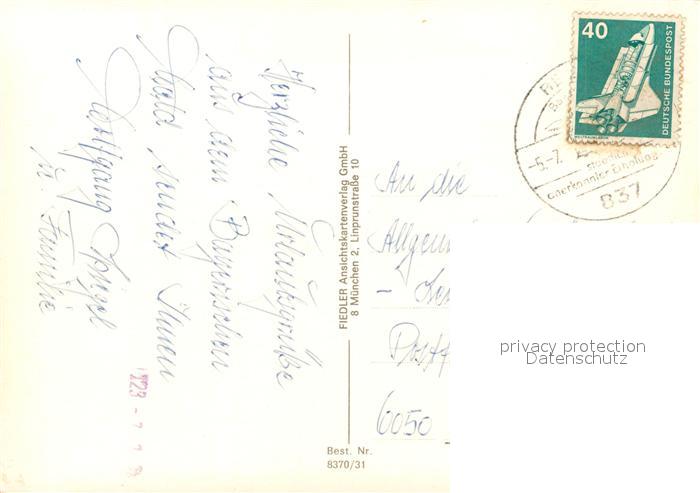 Herzliche Urlaubsgrüße
aus dem Bayerischen
Wald sendet Ihnen
Wolfgang Spiegel
u. Familie
FIEDLER Ansichtskartenverlag GmbH
8 München 2, Linprunstraße 10
Best. Nr.
8370/31
40
DEUTSCHE BUNDESPOST
WELTRAUMLABOR
-5.-7.
anerkannter Erholung
837
An die
Allgem
-
Postf
6050
privacy protection
Datenschutz